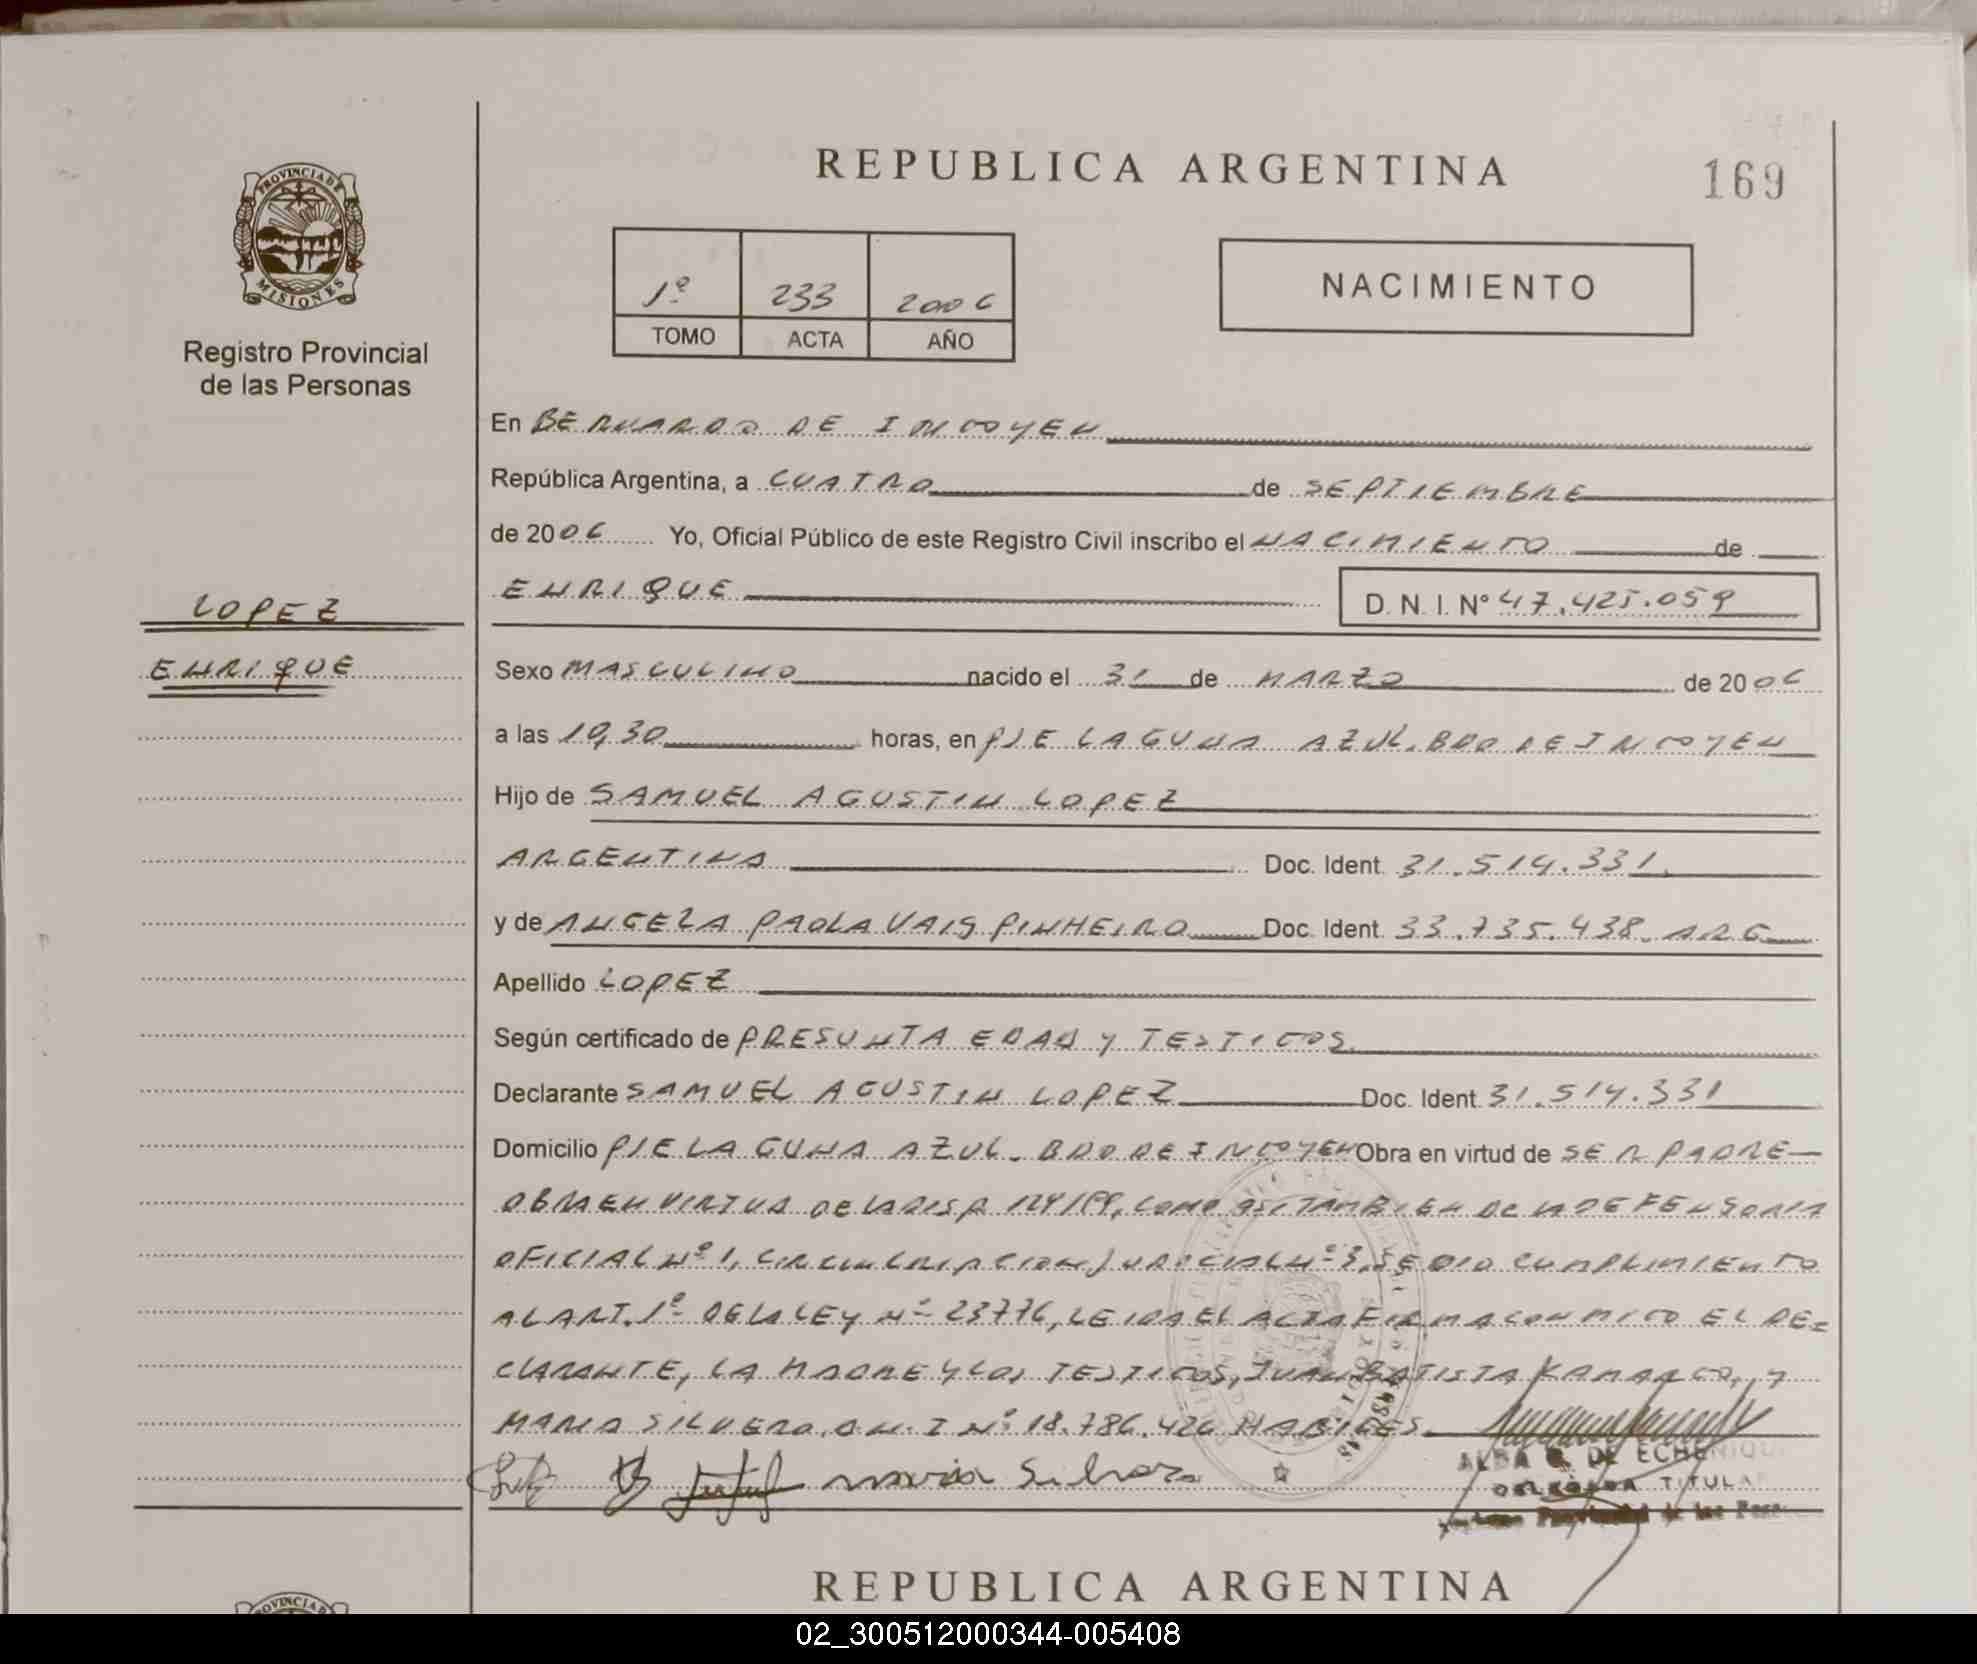 PROVINCIA DE
MISIONES
Registro Provincial
de las Personas
REPUBLICA ARGENTINA
169
1º 233 2006
TOMO ACTA AÑO
NACIMIENTO
En BERNARDO DE IRIGOYEN
República Argentina, a CUATRO de SEPTIEMBRE
de 2006 Yo, Oficial Público de este Registro Civil inscribo el NACIMIENTO de
ENRIQUE D. N. I. Nº 47.425.059
LOPEZ
ENRIQUE
Sexo MASCULINO nacido el 31 de MARZO de 2006
a las 10,30 horas, en PJE LAGUNA AZUL. BDO DE IRIGOYEN
Hijo de SAMUEL AGUSTIN LOPEZ
ARGENTINA Doc. Ident. 31.514.331.
y de ANGELA PAOLA VAIS PINHEIRO Doc. Ident. 33.735.438. ARG
Apellido LOPEZ
Según certificado de PRESUNTA EDAD Y TESTIGOS
Declarante SAMUEL AGUSTIN LOPEZ Doc. Ident. 31.514.331
Domicilio PJE LAGUNA AZUL. BDO DE IRIGOYEN Obra en virtud de SER PADRE
OBRA EN VIRTUD DE LA DISP. 124/99, COMO ASI TAMBIEN DE LA DEFENSORIA
OFICIAL Nº 1, CIRCUNCRIPCION JUDICIAL Nº 3, SE DIO CUMPLIMIENTO
AL ART. 1º DE LA LEY Nº 23776, LEIDA EL ACTA FIRMA CONMIGO EL DE=
CLARANTE, LA MADRE Y LOS TESTIGOS, JUAN BATISTA KAMARGO, Y
MARIA SILVERO, D.N.I Nº 18.786.426 HABILES.
Maria Silvero
ALBA DE ECHENIQU
DELEGADA TITULAR
Provincial de las Pers
REPUBLICA ARGENTINA
PROVINCIA D
02_300512000344-005408